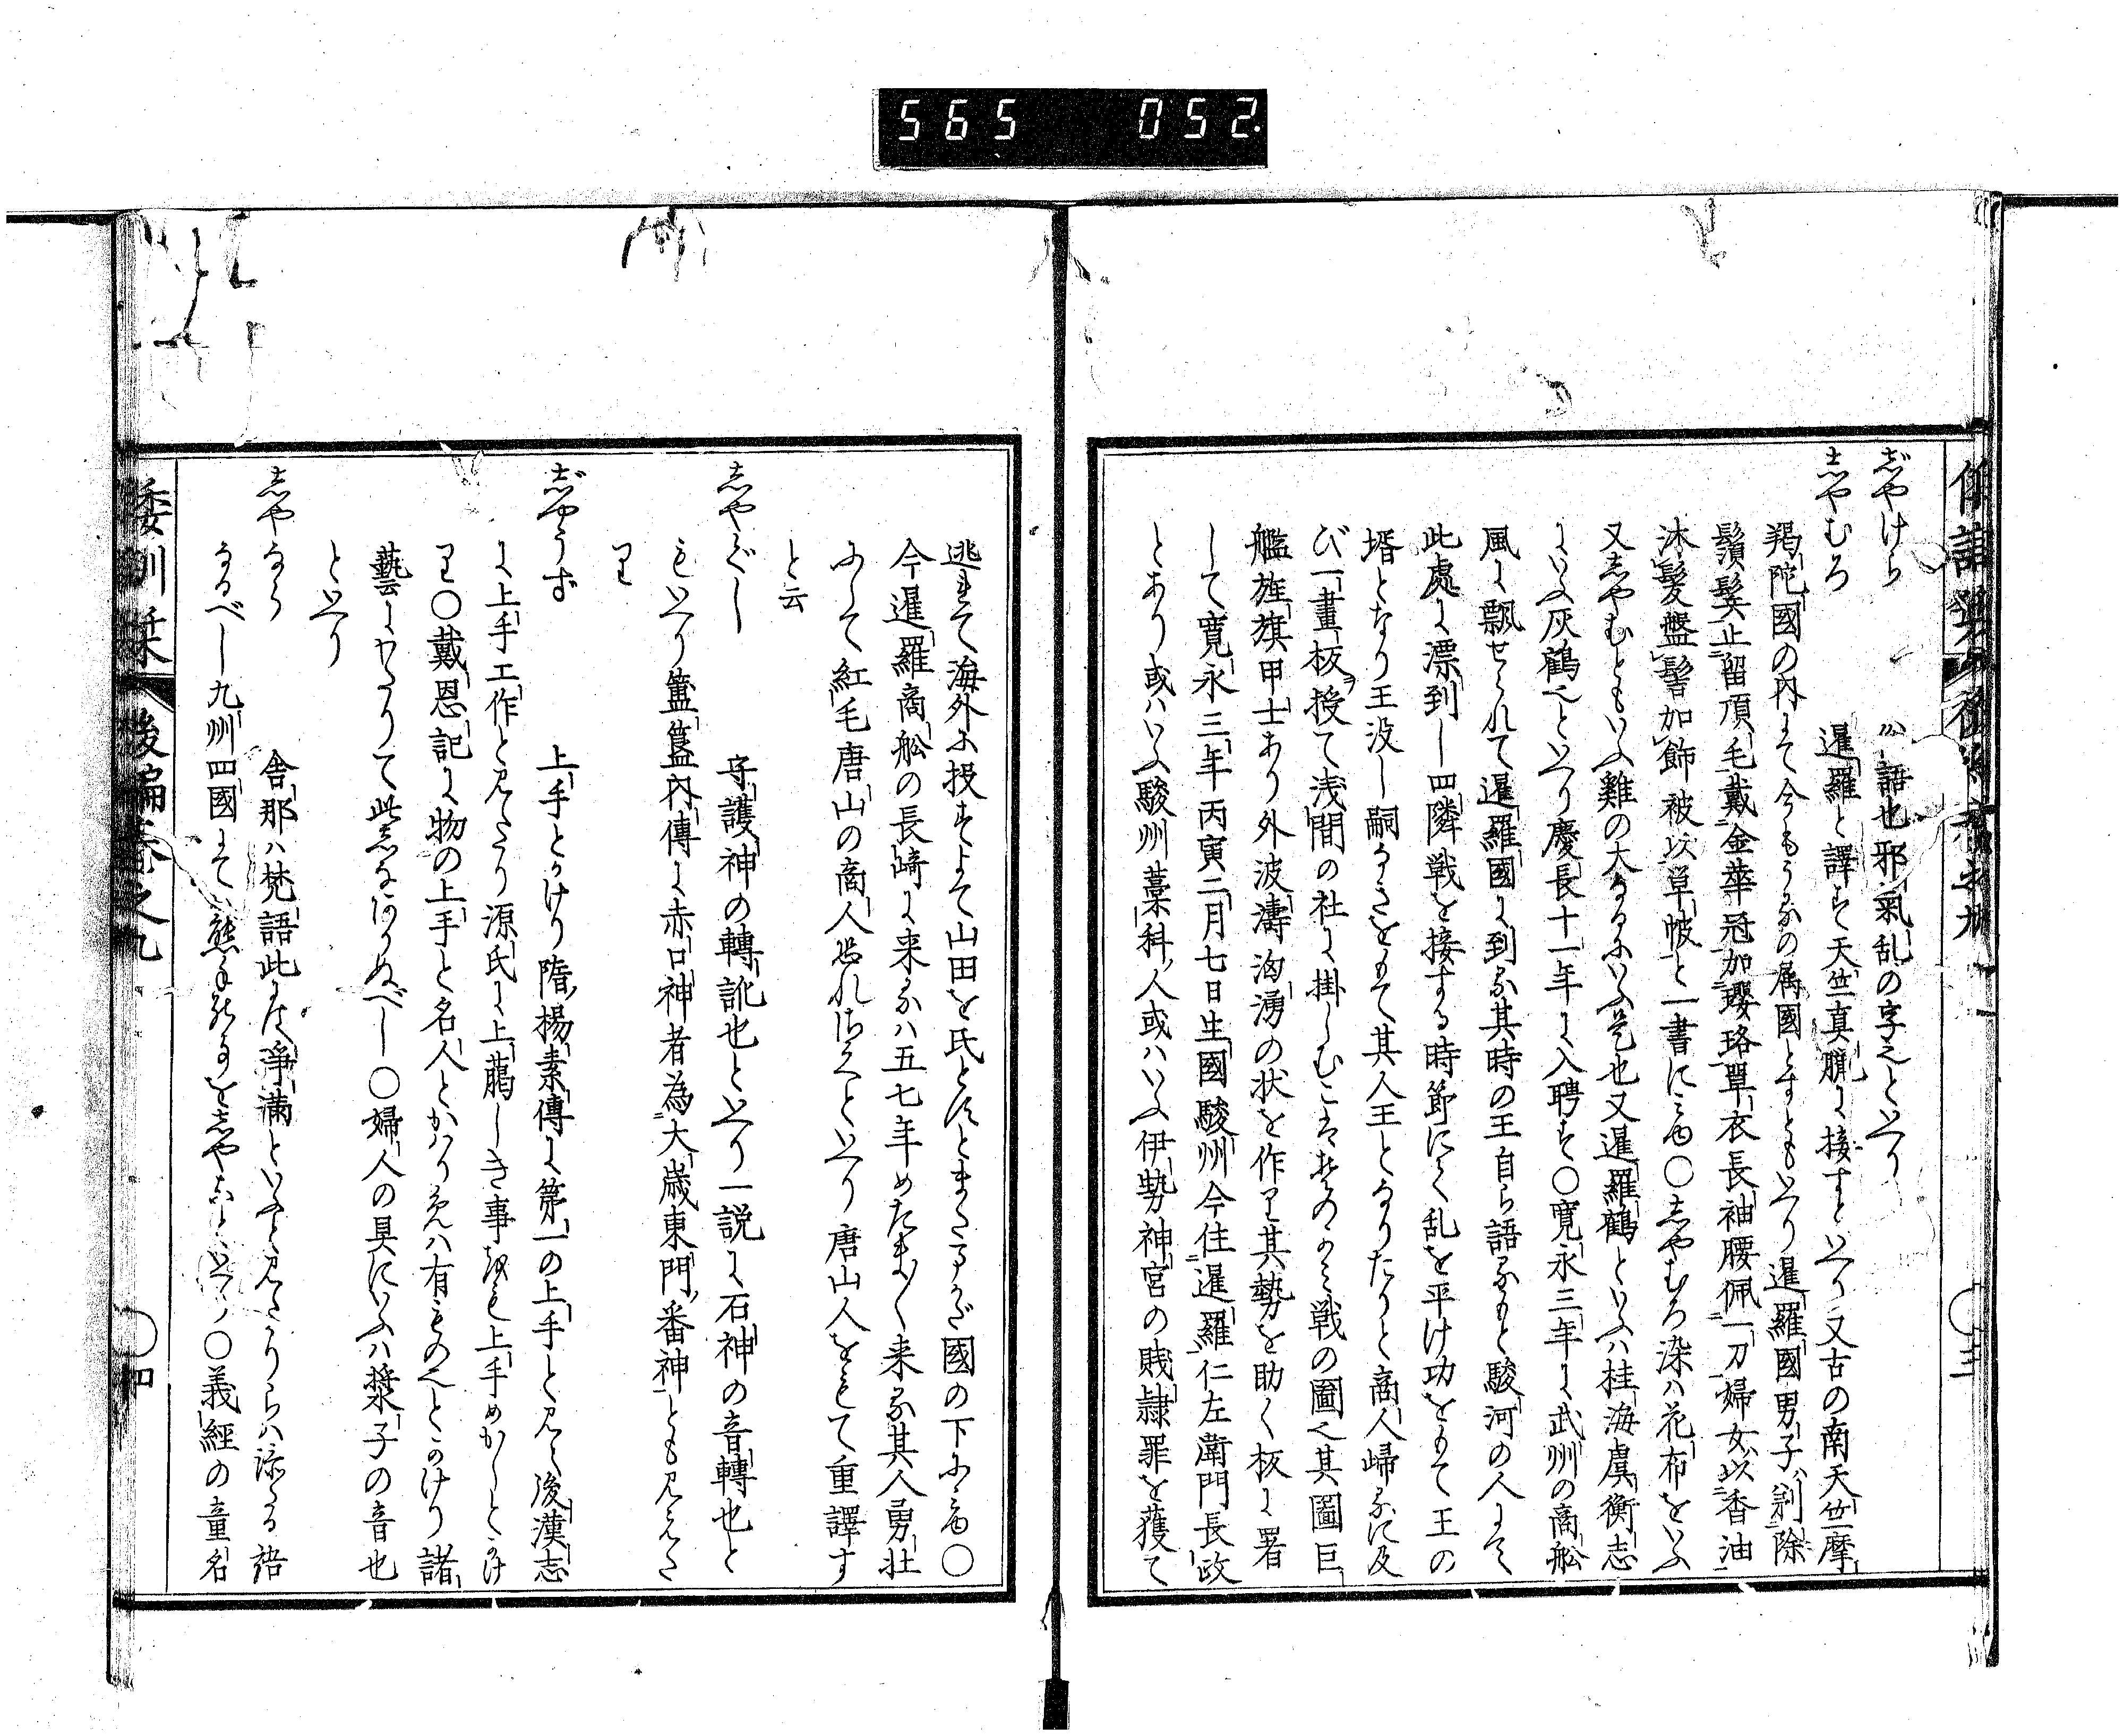 565 052
じやけら 俗語也邪氣乱の字也といへり
しやむろ 暹羅と譯す天竺真臘に接すといへり又古の南天竺摩
羯陀國の内にて今もうるの属國とすともいへり暹羅國男子剃除
鬚髪止留頂毛戴金華冠加瓔珞單衣長袖腰佩一刀婦女以香油
沐髪盤髻加飾被以草帔と一書にみゆ〇しやむろ染ハ花布をいふ
又しやむともいふ雞の大なるにいふ是也又暹羅鶴といふハ桂海虞衡志
にいふ灰鶴也といへり慶長十一年に入聘す〇寛永三年に武州の商舩
風に飄せられて暹羅國に到る其時の王自ら語るもと駿河の人にて
此處に漂到し四隣戦を接する時節にて乱を平け功をもて王の
壻となり王没し嗣なきをもて其人王となりたりと商人歸るに及
び一畫板授て浅間の社に掛しむこは其のうみ戦の圖也其圖巨
艦旌旗甲士あり外波濤洶湧の状を作り其勢を助く板に署
して寛永三年丙寅二月七日生國駿州今住暹羅仁左衛門長政
とあり或ハいふ駿州藁科人或ハいふ伊勢神宮の賎隷罪を獲て
逃れて海外に投すよて山田を氏とすとまたうるだ國の下にみゆ〇
今暹羅商舩の長崎に来るハ五七年めたま〱来る其人勇壮
にして紅毛唐山の商人恐れはゞくといへり唐山人をもて重譯す
と云
しやぐし 守護神の轉訛也といへり一説に石神の音轉也と
もいへり簠簋内傳に赤口神者為大歳東門番神とも見えた
り
じやうず 上手とかけり隋楊素傳に第一の上手と見ゆ後漢志
に上手工作と見えたり源氏に上臈しき事をも上手めかしとかけ
り〇戴恩記に物の上手と名人とかハり名ハ有ものとかけり諸
藝にわたりて此しなにありぬべし〇婦人の具にいふハ漿子の音也
といへり
しやなら 舎那ハ梵語此に浄満といふと見えたりらハ添たる語
なるべし九州四國にては熊手なるをしやなといへり〇義經の童名
倭訓栞 後編巻之九 〇四
〇三